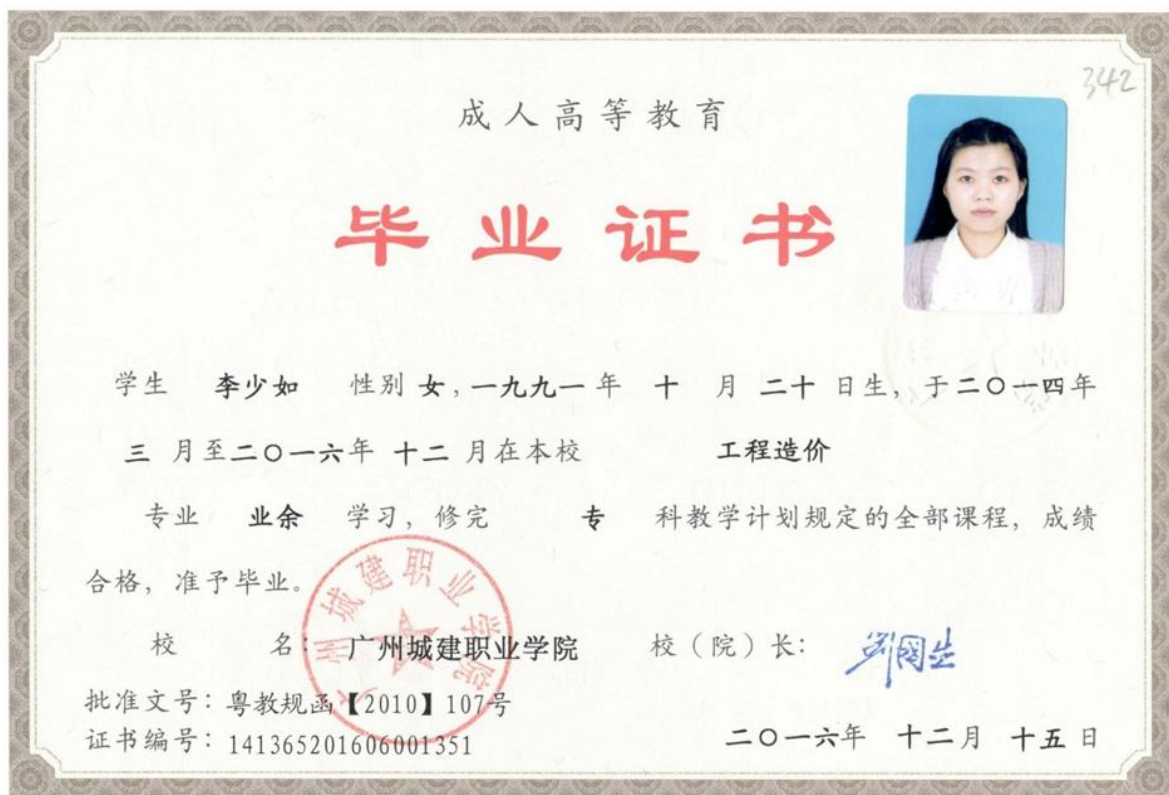 342
成人高等教育
毕业证书
学生 李少如 性别 女,一九九一 年 十 月 二十 日生,于二〇一四年
三 月至二〇一六年 十二 月在本校 工程造价
专业 业余 学习,修完 专 科教学计划规定的全部课程,成绩
合格,准予毕业。
广州城建职业学院
校 名: 广州城建职业学院 校(院)长: 刘国生
批准文号:粤教规函【2010】107号
证书编号:141365201606001351
二〇一六年 十二月 十五 日